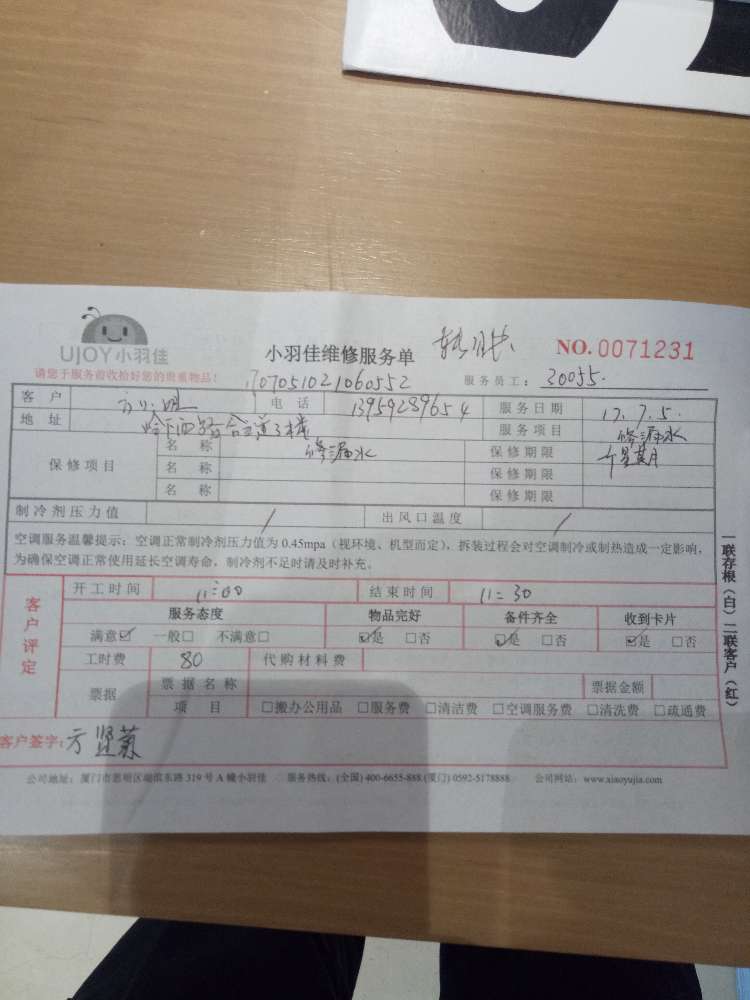 UJOY小羽佳
小羽佳维修服务单
NO.0071231
请您于服务前收拾好您的贵重物品!
服务员工: 30055
客户
电话 13959289654
服务日期 17.7.5.
地址
服务项目 修漏水
保修项目
名称 修漏水 保修期限
名称 保修期限
名称 保修期限
制冷剂压力值 / 出风口温度 /
空调服务温馨提示: 空调正常制冷剂压力值为 0.45mpa（视环境、机型而定），拆装过程会对空调制冷或制热造成一定影响，
为确保空调正常使用延长空调寿命，制冷剂不足时请及时补充。
客户评定
开工时间 11:00 结束时间 11:30
服务态度 物品完好 备件齐全 收到卡片
满意☑ 一般□ 不满意□ ☑是 □否 ☑是 □否 ☑是 □否
工时费 80 代购材料费
票据 票据名称 票据金额
项目 □搬办公用品 □服务费 □清洁费 □空调服务费 □清洗费 □疏通费
客户签字:方贤菊
公司地址: 厦门市思明区湖滨东路 319 号 A 幢小羽佳 服务热线: (全国) 400-6655-888 (厦门) 0592-5178888 公司网站: www.xiaoyujia.com
一联存根(白)二联客户(红)